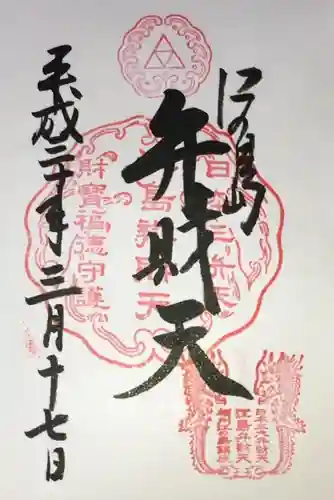 江の島
弁財天
平成二十年三月十七日
日本三弁天
江島弁財天
財寶福徳守護